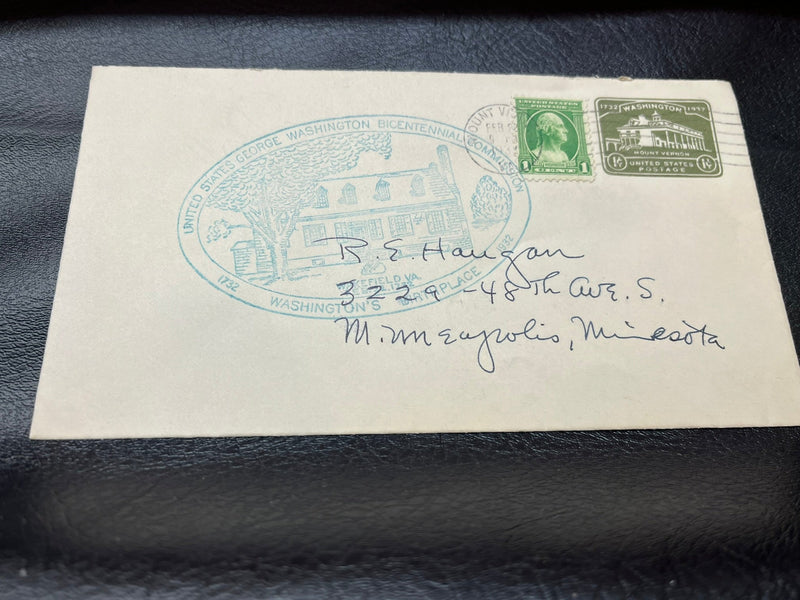 UNITED STATES GEORGE WASHINGTON BICENTENNIAL COMMISSION
1732
WAKEFIELD VA.
WASHINGTON'S BIRTHPLACE
1932
MOUNT
FEB
UNITED STATES
POSTAGE
1 1
1732 WASHINGTON 1932
MOUNT VERNON
1½ UNITED STATES 1½
POSTAGE
R. E. Haugan
3229 - 48th Ave. S.
Minneapolis, Minnesota